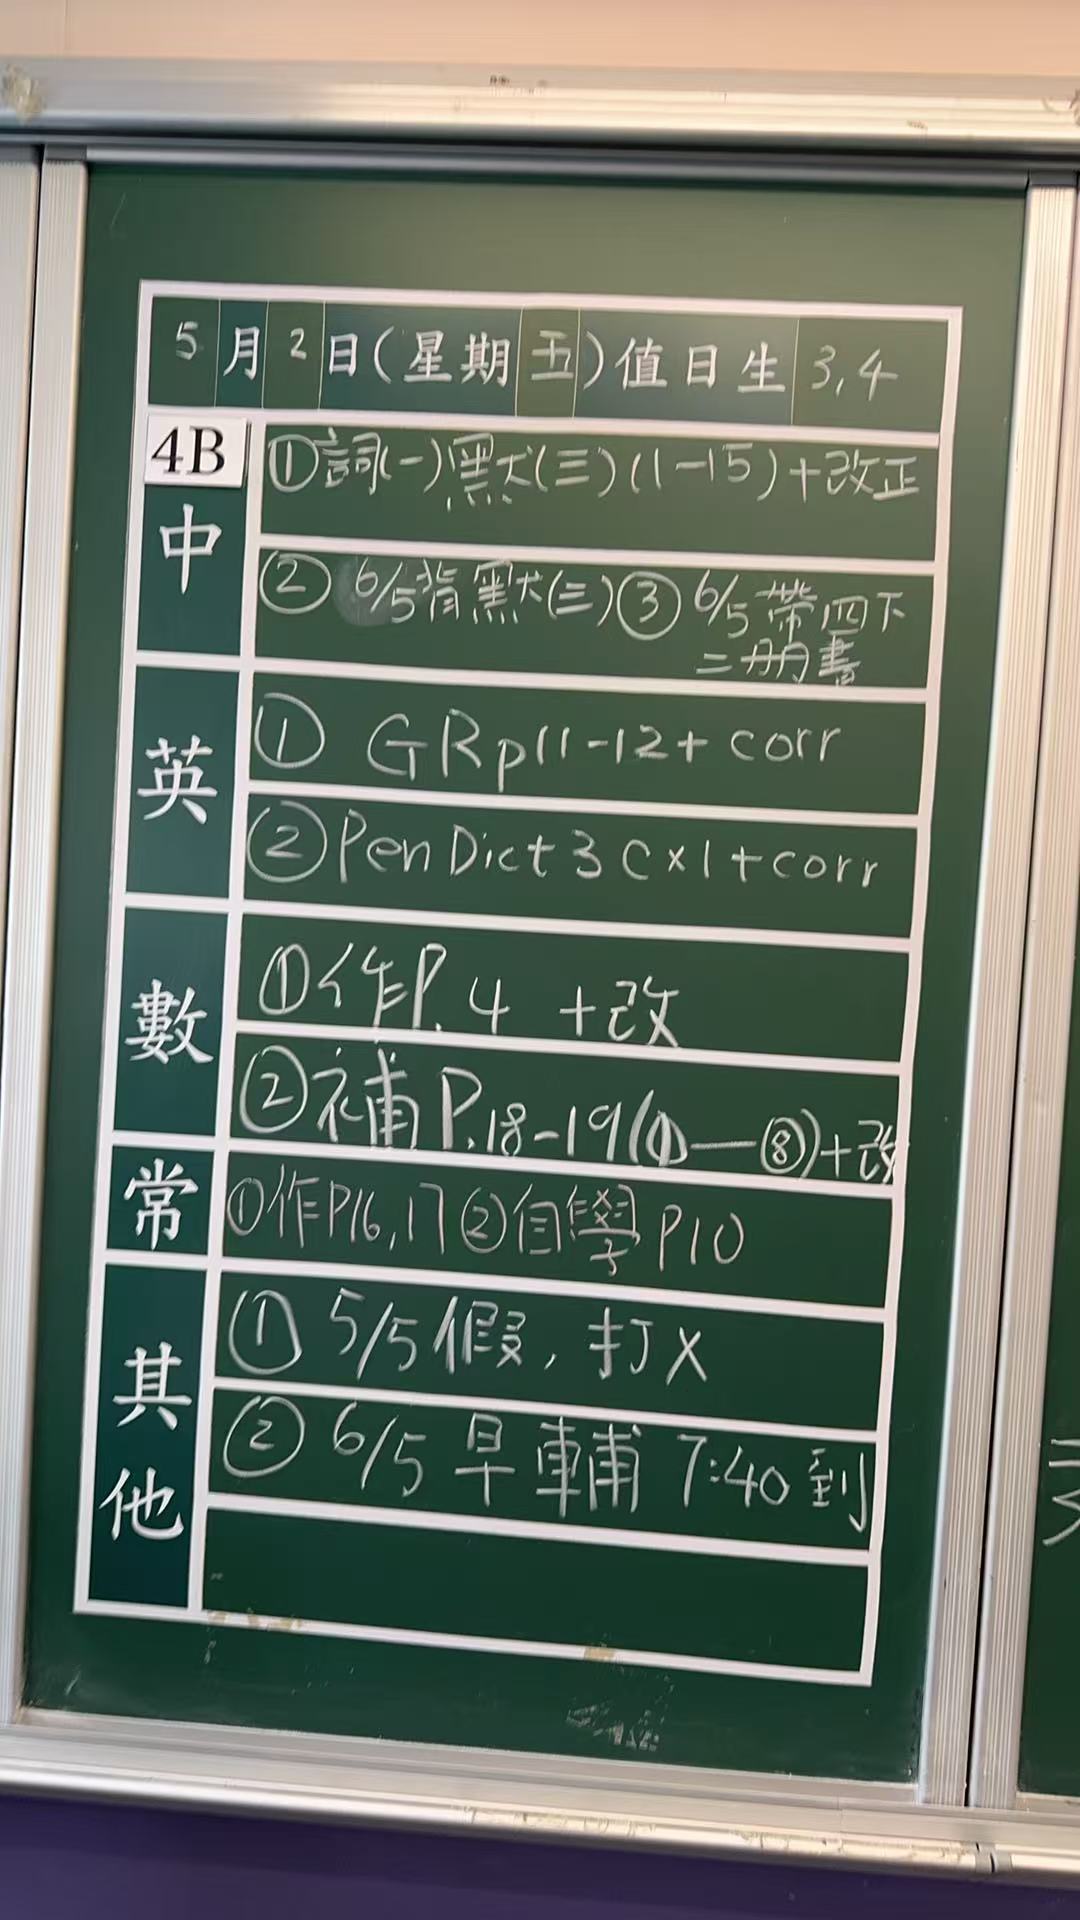 5月2日(星期五)值日生 3,4
4B
中
①詞(一)默(三)(1-15)+改正
② 6/5背默(三)③ 6/5帶四下
二冊書
英
① GR p11-12+corr
②Pen Dict 3 C×1+corr
數
①作P.4 +改
②補P.18-19(①—⑧)+改
常
①作P16,17②自學P10
其他
① 5/5假,打X
② 6/5 早輔 7:40到